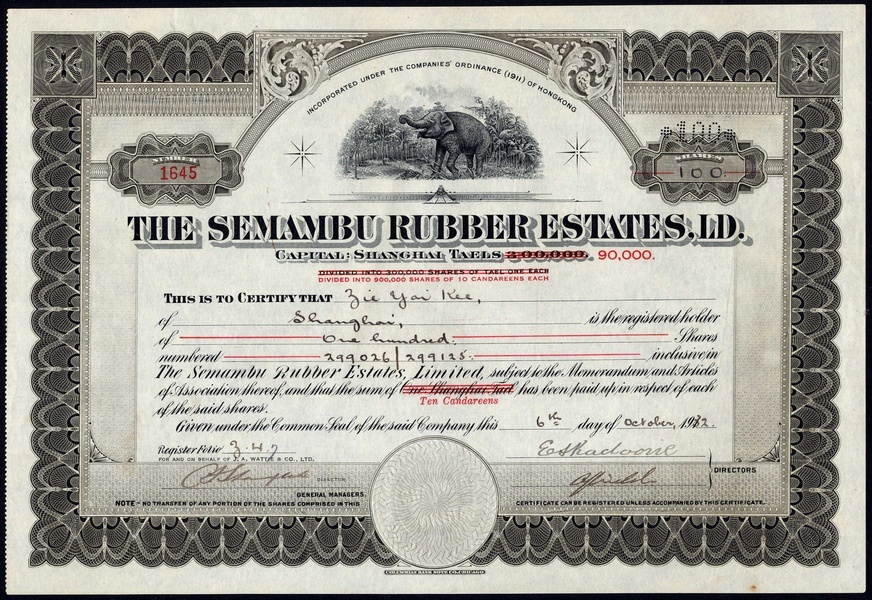 INCORPORATED UNDER THE COMPANIES' ORDINANCE (1911) OF HONGKONG
NUMBER
1645
100
SHARES
100
THE SEMAMBU RUBBER ESTATES, LD.
CAPITAL: SHANGHAI TAELS 300,000. 90,000.
DIVIDED INTO 300,000 SHARES OF TAEL ONE EACH
DIVIDED INTO 900,000 SHARES OF 10 CANDAREENS EACH
THIS IS TO CERTIFY THAT Zie Yai Kee,
of Shanghai, is the registered holder
of One hundred. Shares
numbered 299026/299125. inclusive in
The Semambu Rubber Estates, Limited, subject to the Memorandum and Articles
of Association thereof, and that the sum of One Shanghai Tael has been paid up in respect of each
Ten Candareens
of the said shares.
Given under the Common Seal of the said Company this 6th day of October, 1932.
Register Folio 3.4.7
FOR AND ON BEHALF OF J. A. WATTIE & CO., LTD.
DIRECTOR
GENERAL MANAGERS.
DIRECTORS
NOTE—NO TRANSFER OF ANY PORTION OF THE SHARES COMPRISED IN THIS
CERTIFICATE CAN BE REGISTERED UNLESS ACCOMPANIED BY THIS CERTIFICATE.
COLUMBIAN BANK NOTE CO. CHICAGO